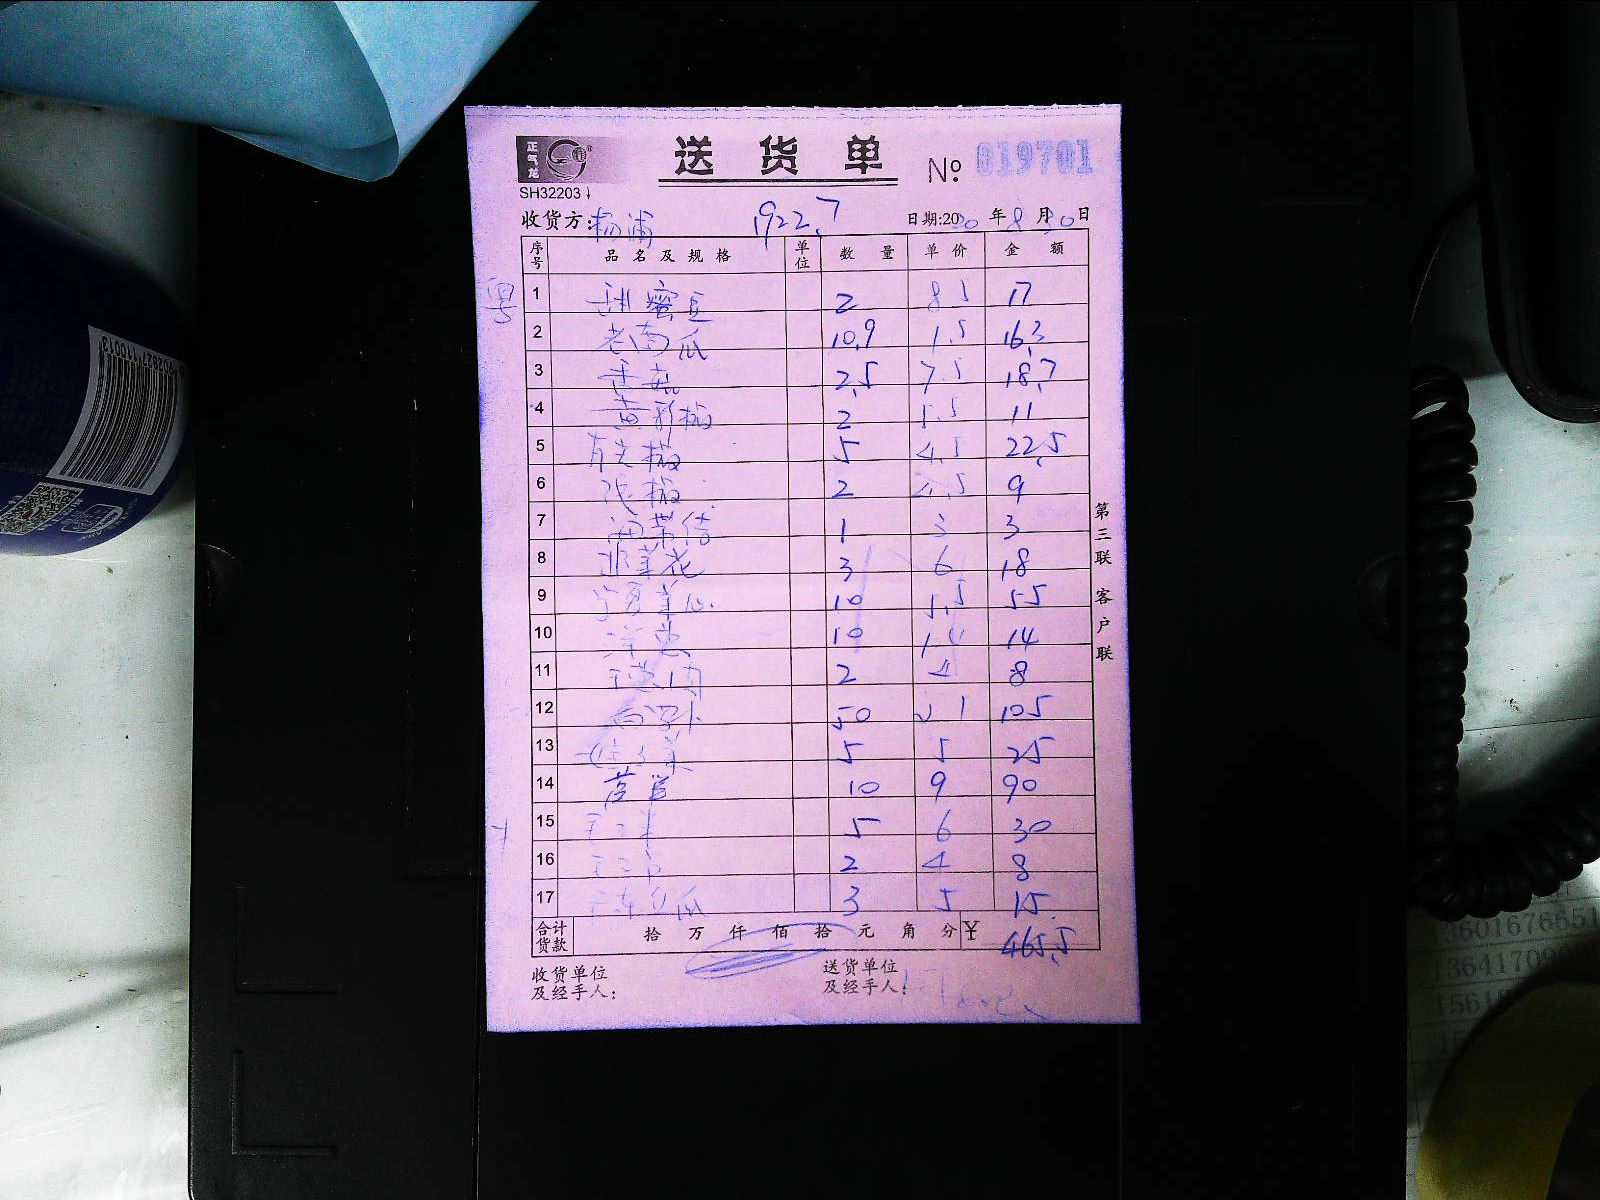 正气龙
送货单 № 019701
SH32203
收货方:杨浦 1922.7 日期:2020年8月30日
序号 品名及规格 单位 数量 单价 金额
1 甜蜜豆 2 8.5 17
2 老南瓜 10.9 1.5 16.3
3 香菇 2.5 7.5 18.7
4 黄彩椒 2 5.5 11
5 青尖椒 5 4.5 22.5
6 2 4.5 9
7 海带结 1 3 3
8 韭菜花 3 6 18
9 10 5.5 55
10 洋葱 10 1.4 14
11 2 4 8
12 50 2.1 105
13 娃娃菜 5 5 25
14 莴笋 10 9 90
15 5 6 30
16 2 4 8
17 3 5 15
合计货款 拾万仟佰拾元角分 ¥ 465.5
收货单位 送货单位
及经手人: 及经手人:
第三联 客户联